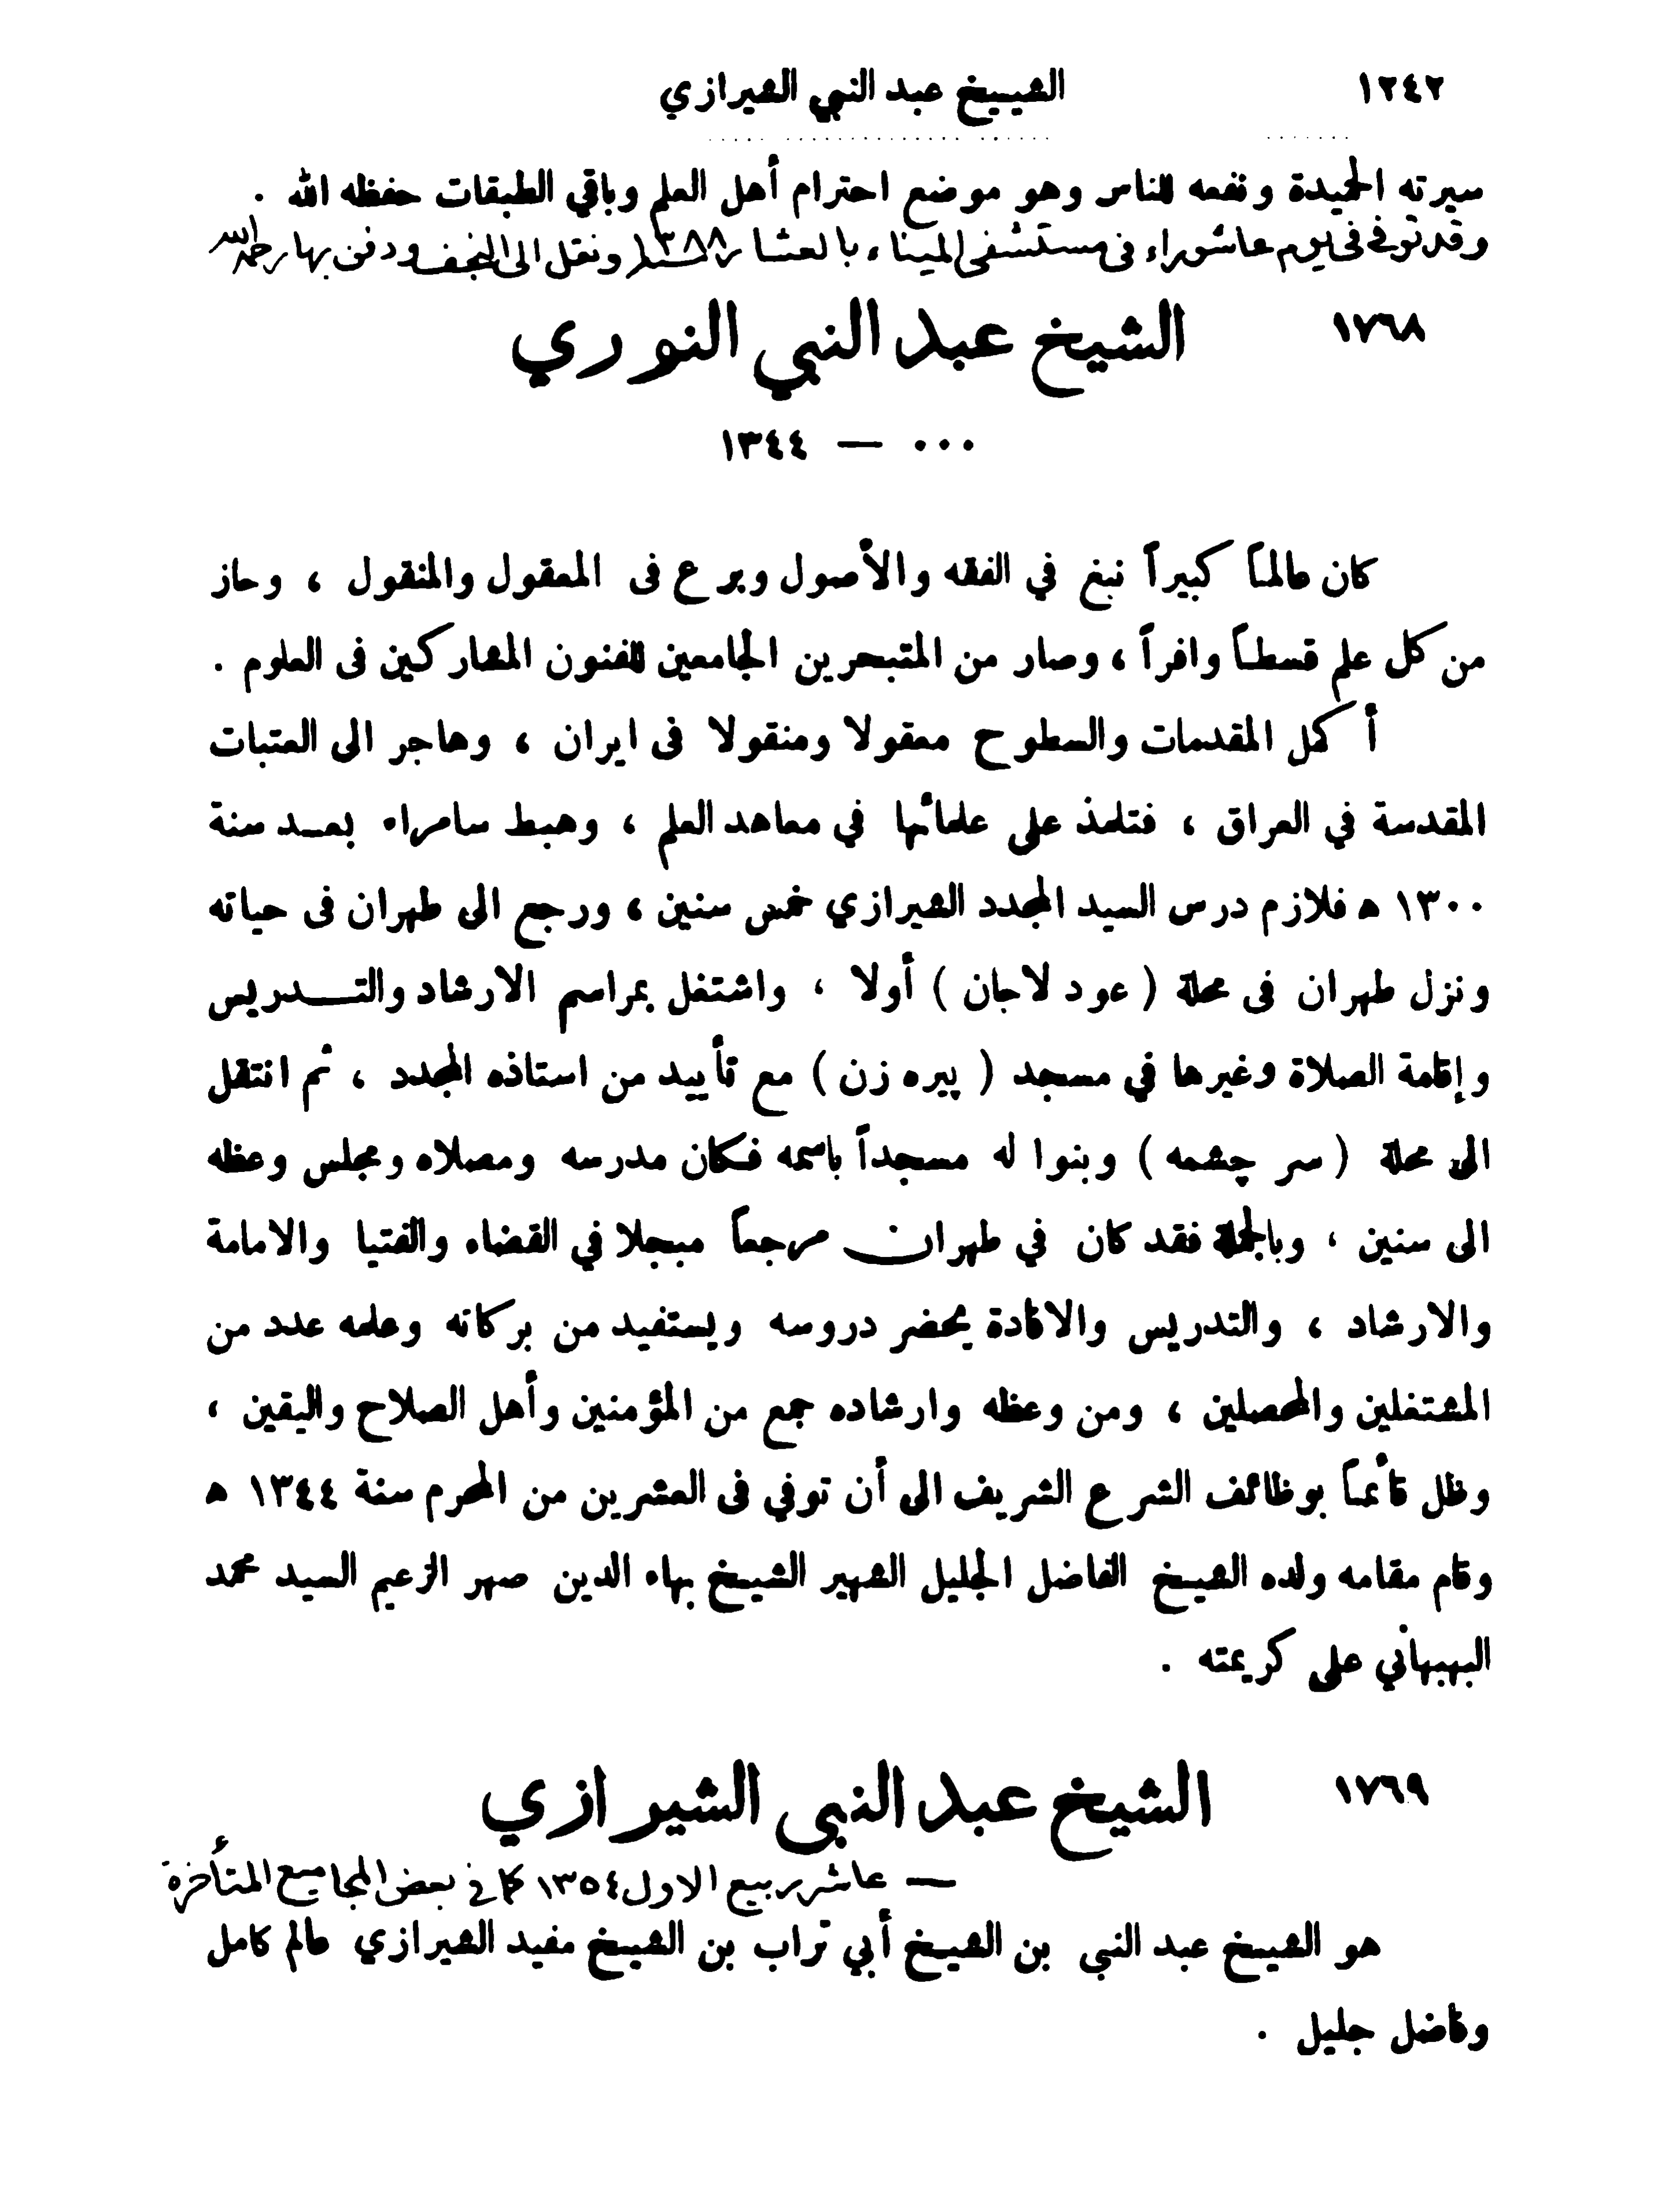 ١٢٤٢ الشيخ عبد النبي الشيرازي
سيرته الحميدة ونفعه للناس وهو موضع احترام أهل العلم وباقي الطبقات حفظه الله .
وقد توفي في يوم عاشوراء في مستشفى الميناء بالعشار ١٣٨٨ ونقل الى النجف ودفن بها رحمه الله
١٧٦٨ الشيخ عبد النبي النوري
٠٠٠ — ١٣٤٤
كان عالماً كبيراً نبغ في الفقه والأصول وبرع في المعقول والمنقول ، وحاز
من كل علم قسطاً وافراً ، وصار من المتبحرين الجامعين للفنون المشاركين في العلوم .
أكمل المقدمات والسطوح معقولا ومنقولا في ايران ، وهاجر الى العتبات
المقدسة في العراق ، فتلمذ على علمائها في معاهد العلم ، وهبط سامراء بعد سنة
١٣٠٠ ه فلازم درس السيد المجدد الشيرازي خمس سنين ، ورجع الى طهران في حياته
ونزل طهران في محلة ( عود لاجان ) أولا ، واشتغل بمراسم الارشاد والتدريس
وإقامة الصلاة وغيرها في مسجد ( پيره زن ) مع تأييد من استاذه المجدد ، ثم انتقل
الى محلة ( سر چشمه ) وبنوا له مسجداً باسمه فكان مدرسه ومصلاه ومجلس وعظه
الى سنين ، وبالجملة فقد كان في طهران مرجعاً مبجلا في القضاء والفتيا والامامة
والارشاد ، والتدريس والافادة يحضر دروسه ويستفيد من بركاته وعلمه عدد من
المشتغلين والمحصلين ، ومن وعظه وارشاده جمع من المؤمنين وأهل الصلاح واليقين ،
وظل قائماً بوظائف الشرع الشريف الى أن توفي في العشرين من المحرم سنة ١٣٤٤ ه
وقام مقامه ولده الشيخ الفاضل الجليل الشهير الشيخ بهاء الدين صهر الزعيم السيد محمد
البهبهاني على كريمته .
١٧٦٩ الشيخ عبد النبي الشيرازي
— عاشر ربيع الاول ١٣٥٤ كما في بعض المجاميع المتأخرة
هو الشيخ عبد النبي بن الشيخ أبي تراب بن الشيخ مفيد الشيرازي عالم كامل
وفاضل جليل .